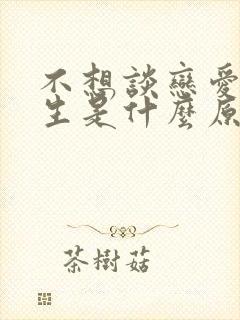 不想談戀愛
生是什麼原
茶樹菇